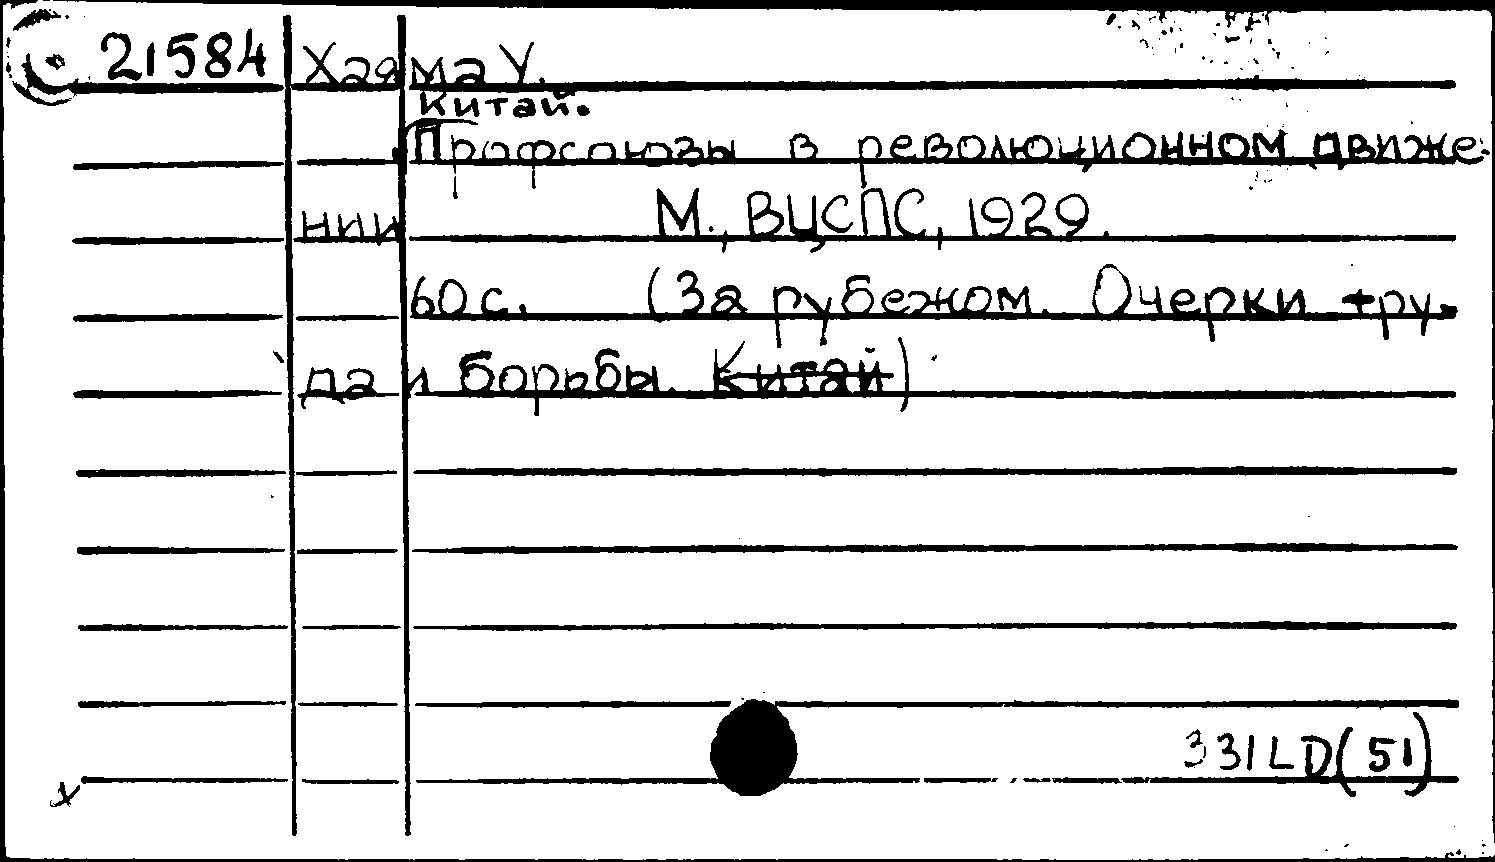 21584 Хаяма У.
Китай.
Профсоюзы в революционном движе-
нии М., ВЦСПС, 1929.
60 с. (За рубежом. Очерки тру-
да и борьбы. Китай)
331LD(51)